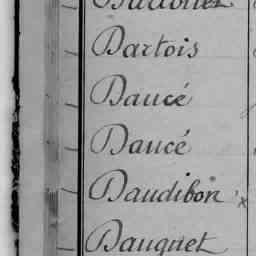 Dartois
Daucé
Daucé
Daudibon
Dauguet